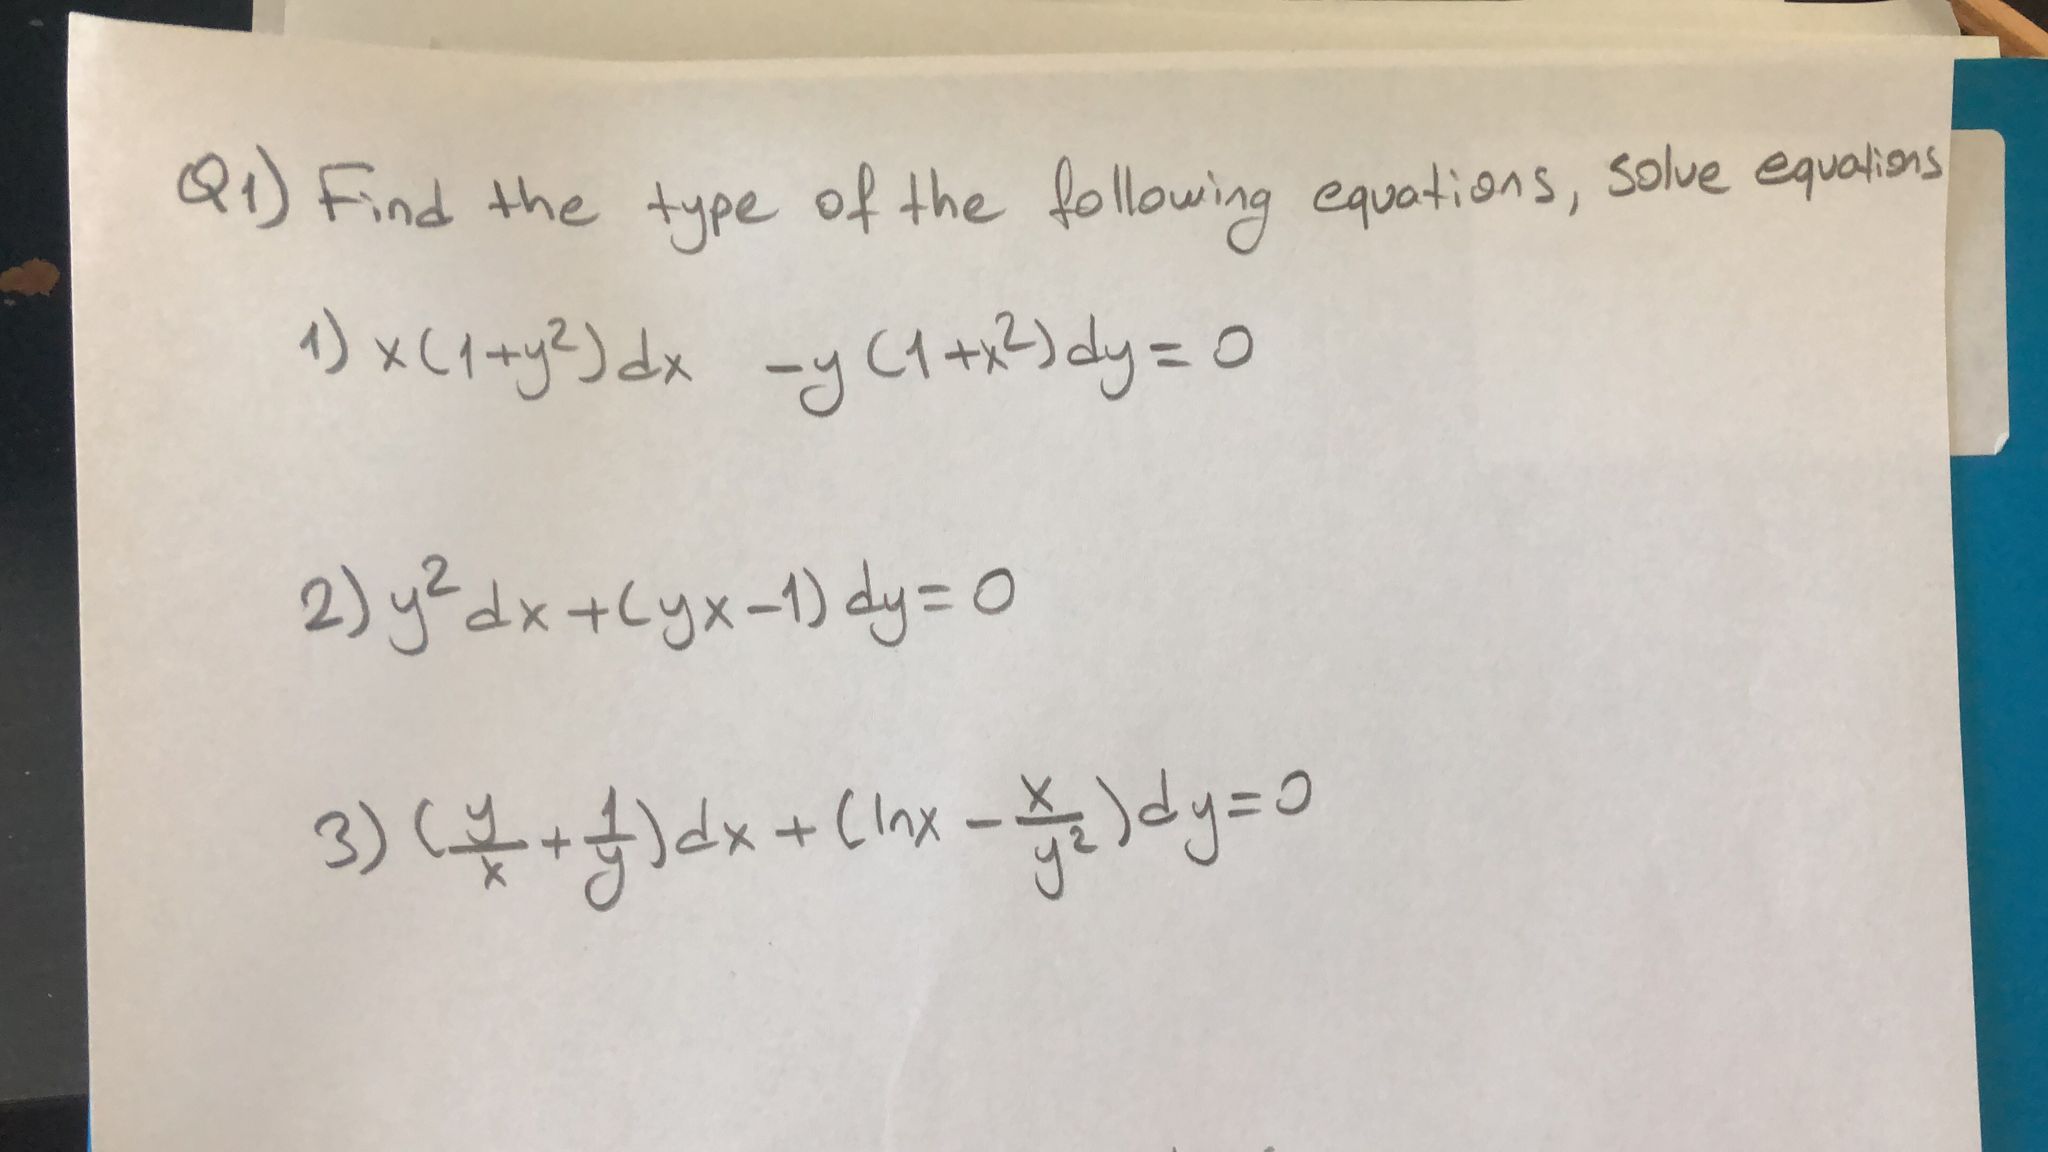 Q1) Find the type of the following equations, solve equations
1) x(1+y²)dx -y(1+x²)dy=0
2) y²dx+(yx-1)dy=0
3) (y/x + 1/y)dx+(lnx - x/y²)dy=0